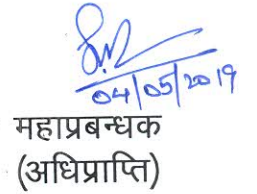 04/05/2019
महाप्रबन्धक
(अधिप्राप्ति)